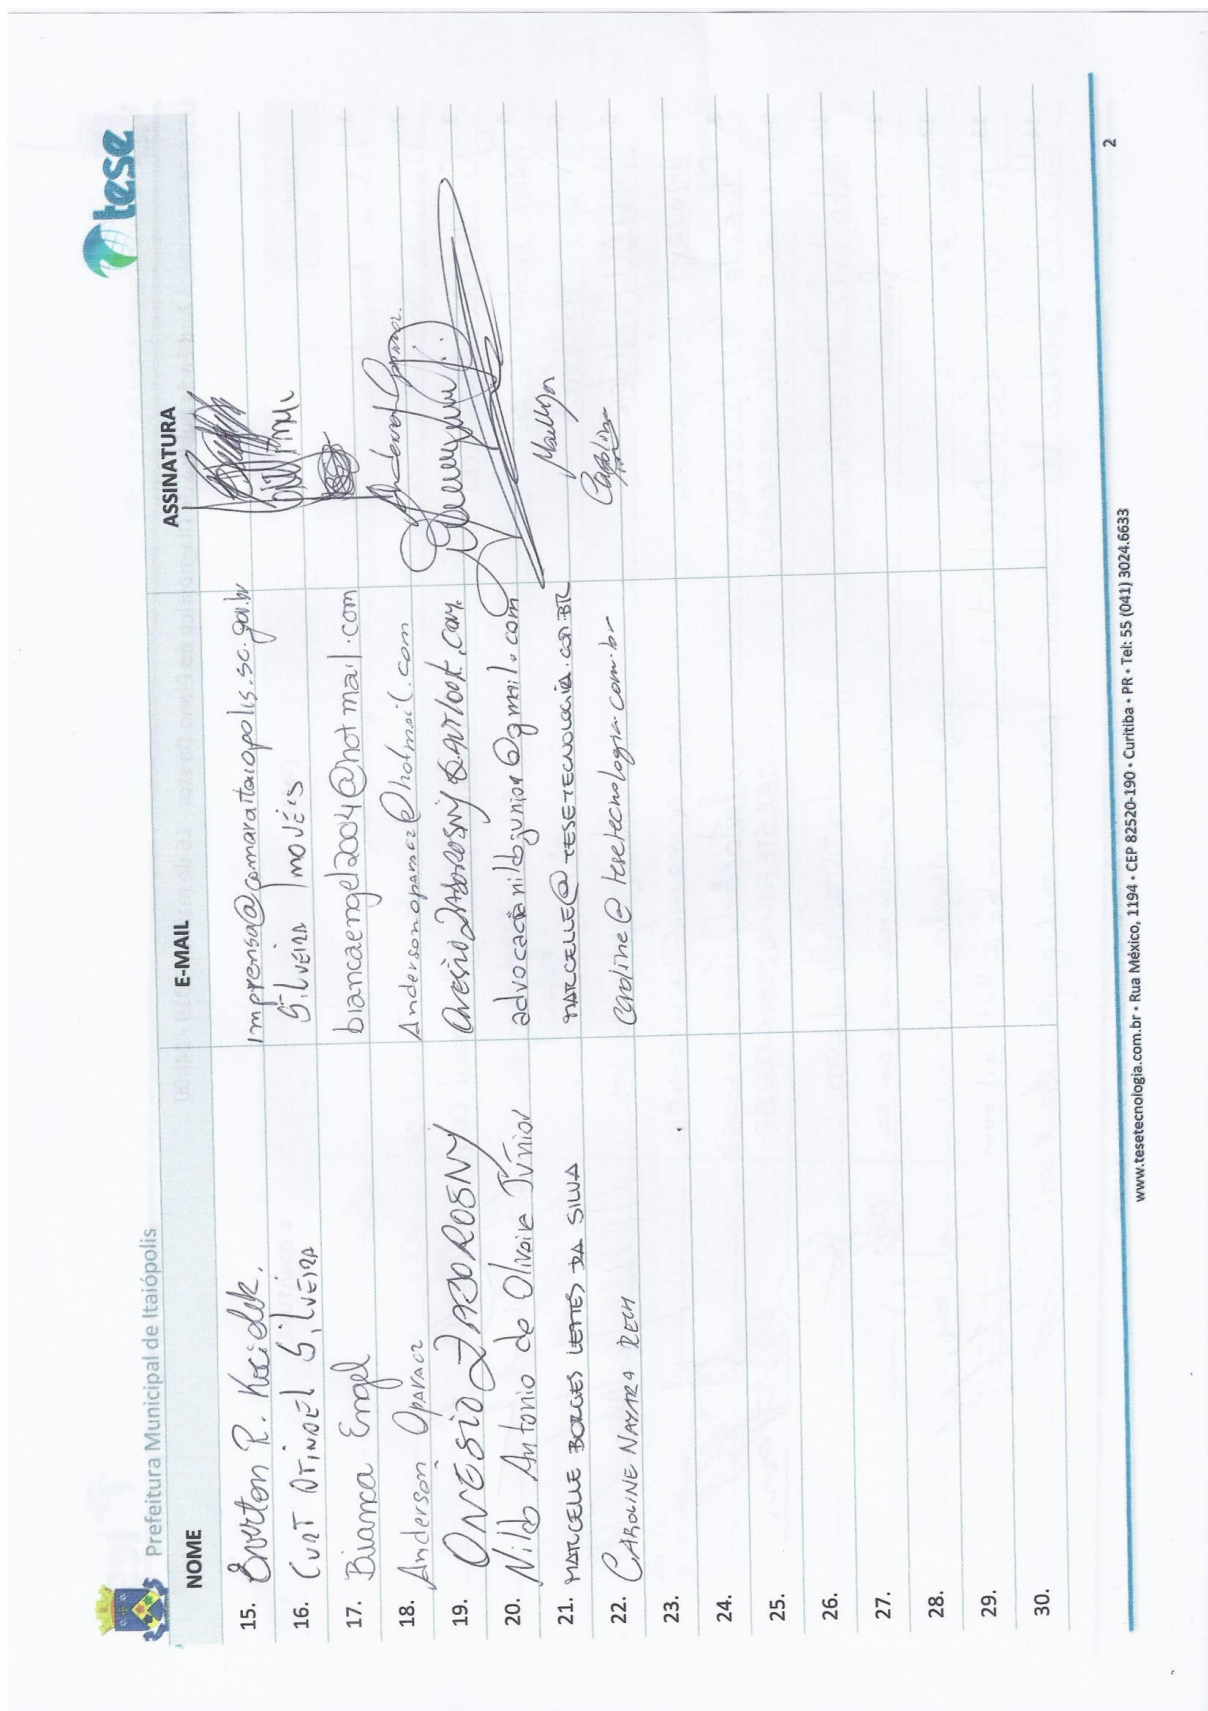 Prefeitura Municipal de Itaiópolis
tese
NOME E-MAIL ASSINATURA
15. Everton R. imprensa@camaraitaiopolis.sc.gov.br
16. CURT SiLVEIRA SiLVEIRA IMOVÉIS
17. Bianca Engel biancaengel2004@hotmail.com
18. Anderson OPARACZ Andersonoparacz@hotmail.com
19. ONÉSIO ZABOROSNY
20. Nildo Antonio de Oliveira Júnior advocacianildojunior@gmail.com
21. MARCELLE BORGES LEMES DA SILVA MARCELLE@TESETECNOLOGIA.COM.BR
22. CAROLINE NAYARA RECH Caroline@tesetecnologia.com.br Caroline
23.
24.
25.
26.
27.
28.
29.
30.
www.tesetecnologia.com.br • Rua México, 1194 • CEP 82520-190 • Curitiba • PR • Tel: 55 (041) 3024.6633
2